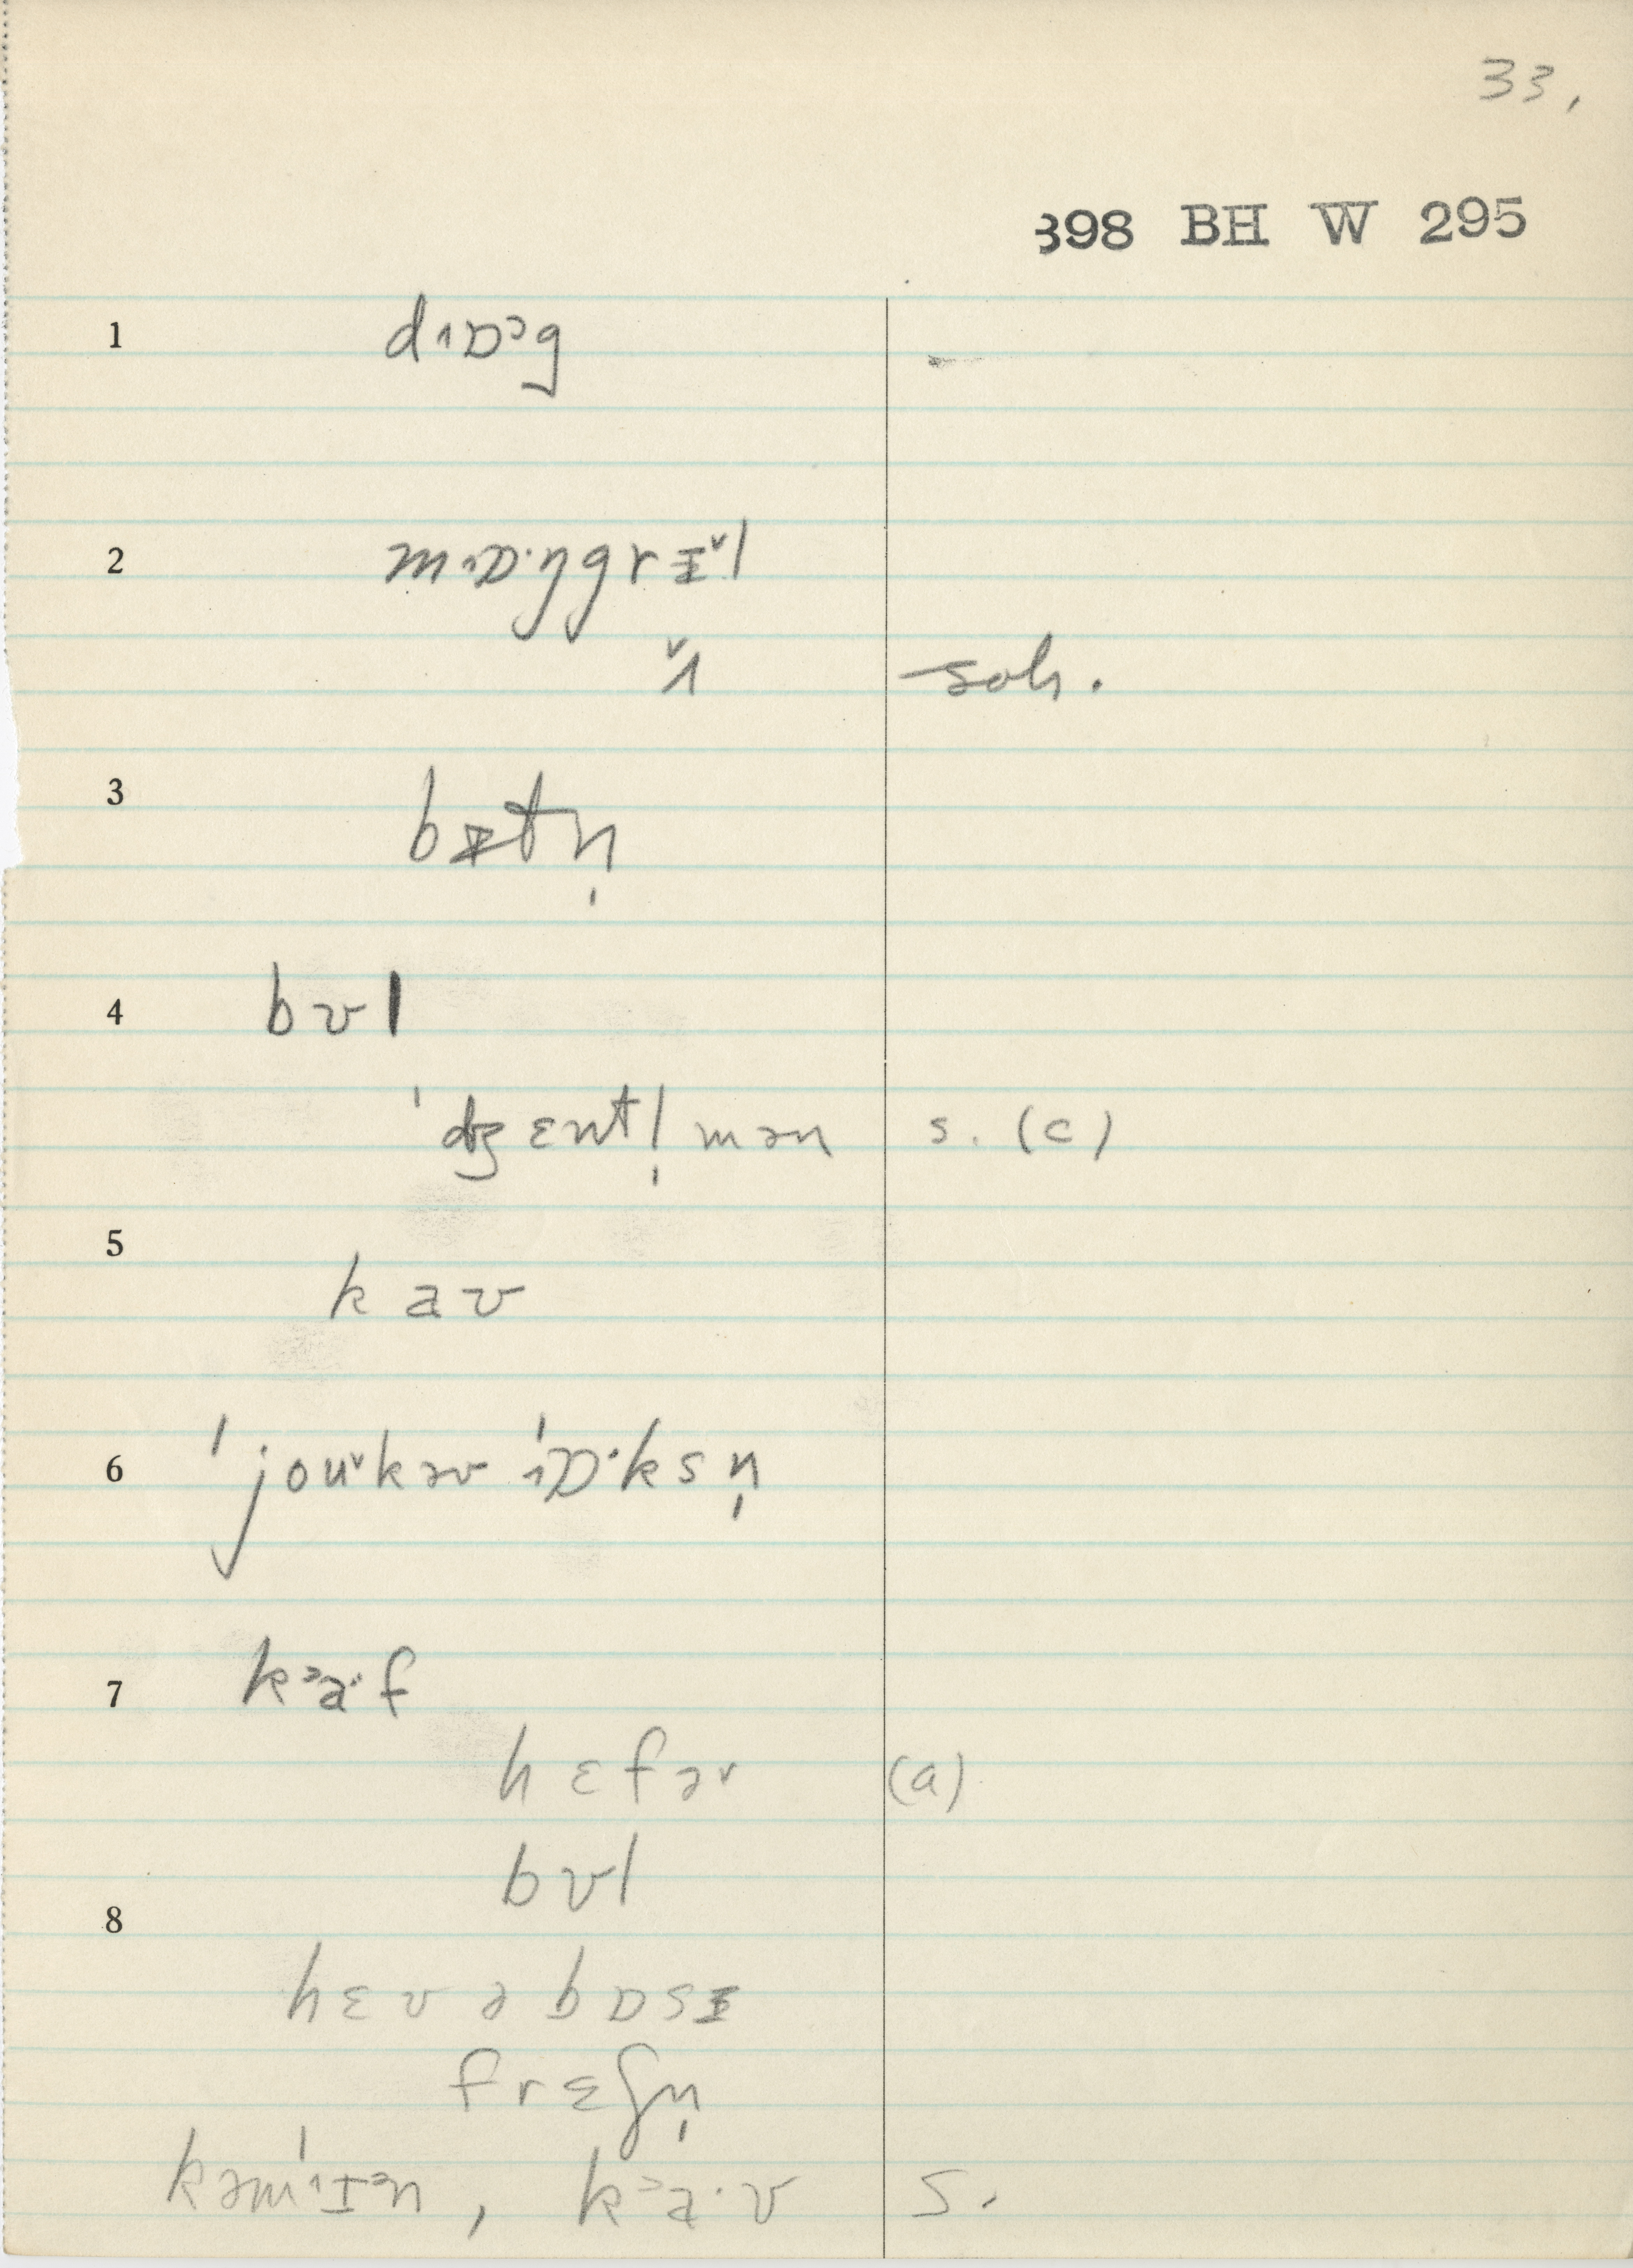 33,
398 BH W 295
1 d˄ɒᵓg
2 m˄ɒ·ŋgrɪ˅l
˅˄ soh.
3 bɪtn̩
4 bʊl
ˈdʒɛntl̩mən s. (c)
5 kaʊ
6 ˈjouˠkəʊˈ˄ɒ·ksn̩
7 kᵊa·f
hɛfəʳ (a)
bʊl
8
hɛvəbɒsɪ
frɛʃn̩
kəmˈ˄ɪᵊn, kᵊa·v s.